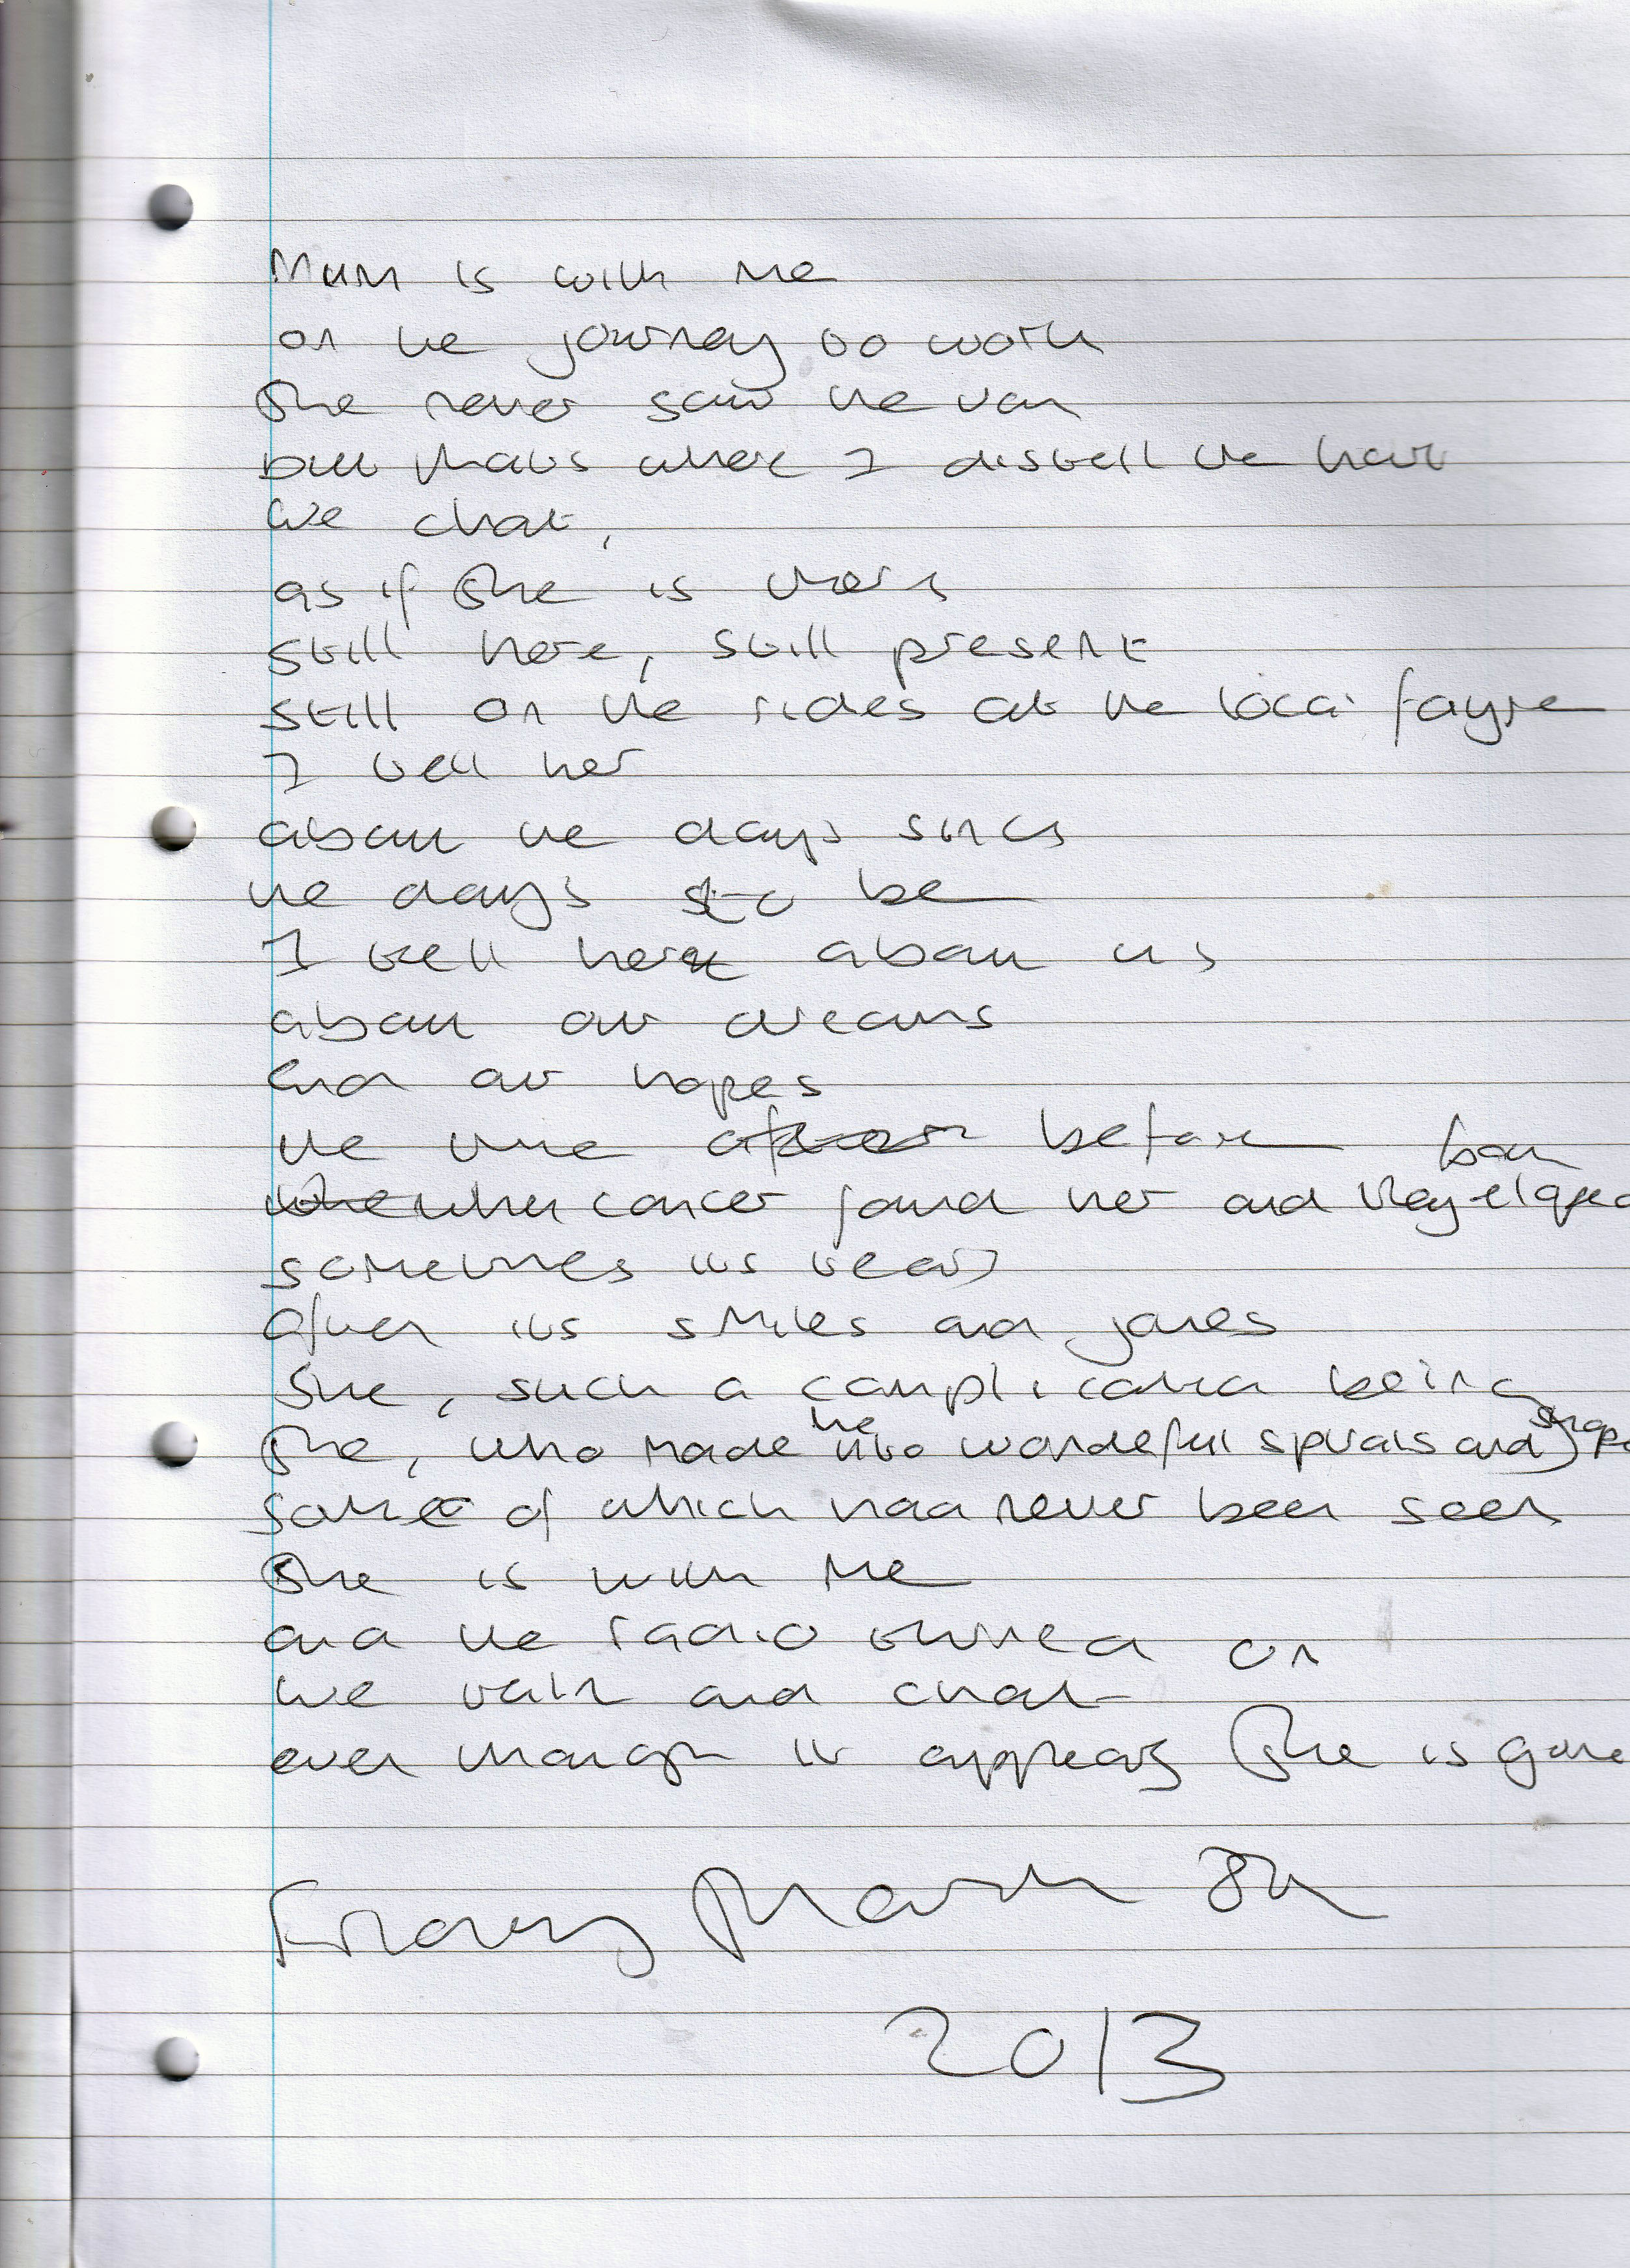 Mum is with me
on the journey to work
She never saw the van
but thats where I distell the
we chat,
as if she is there
still here, still present
still on the rides at the local fayre
I tell her
about the days since
the days to be
I tell her about us
about our dreams
and our hopes
the time before
when cancer found her and they eloped
sometimes its tears
often its smiles and jokes
She, such a complicated being
She, who made me into wonderful spirals and shape
some of which had never been seen
She is with me
and the radio turned on
we talk and chat
even though it appears She is gone
Friday March 8th
2013